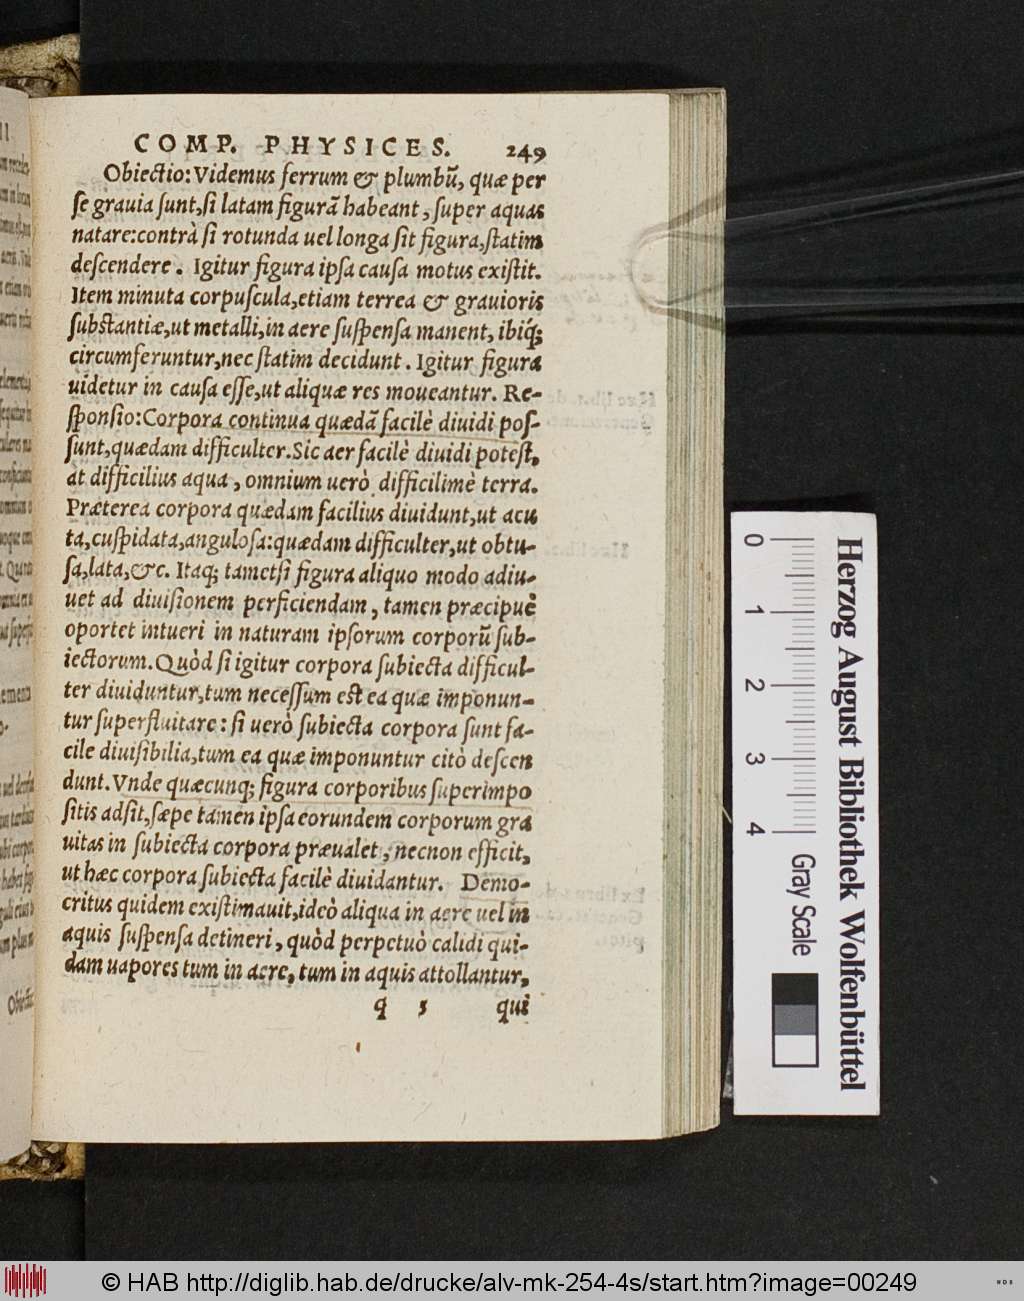 COMP. PHYSICES. 249
Obiectio: Videmus ferrum & plumbũ, quæ per
ſe grauia ſunt, ſi latam figurã habeant, ſuper aquas
natare: contrà ſi rotunda uel longa ſit figura, ſtatim
deſcendere. Igitur figura ipſa cauſa motus exiſtit.
Item minuta corpuſcula, etiam terrea & grauioris
ſubſtantiæ, ut metalli, in aere ſuſpenſa manent, ibiq́;
circumferuntur, nec ſtatim decidunt. Igitur figura
uidetur in cauſa eſſe, ut aliquæ res moueantur. Re-
ſponſio: Corpora continua quædã facilè diuidi poſ-
ſunt, quædam difficulter. Sic aer facilè diuidi poteſt,
at difficilius aqua, omnium uerò difficilimè terra.
Præterea corpora quædam facilius diuidunt, ut acu
ta, cuſpidata, anguloſa: quædam difficulter, ut obtu-
ſa, lata, &c. Itaq; tametſi figura aliquo modo adiu-
uet ad diuiſionem perficiendam, tamen præcipuè
oportet intueri in naturam ipſorum corporũ ſub-
iectorum. Quòd ſi igitur corpora ſubiecta difficul-
ter diuiduntur, tum neceſſum eſt ea quæ imponun-
tur ſuperfluitare: ſi uerò ſubiecta corpora ſunt fa-
cile diuiſibilia, tum ea quæ imponuntur citò deſcen
dunt. Vnde quæcunq; figura corporibus ſuperimpo
ſitis adſit, ſæpe tamen ipſa eorundem corporum gra
uitas in ſubiecta corpora præualet, necnon efficit,
ut hæc corpora ſubiecta facilè diuidantur. Demo-
critus quidem exiſtimauit, ideò aliqua in aere uel in
aquis ſuſpenſa detineri, quòd perpetuò calidi qui-
dam uapores tum in aere, tum in aquis attollantur,
q 5 qui
Herzog August Bibliothek Wolfenbüttel
0 1 2 3 4 Gray Scale
© HAB http://diglib.hab.de/drucke/alv-mk-254-4s/start.htm?image=00249